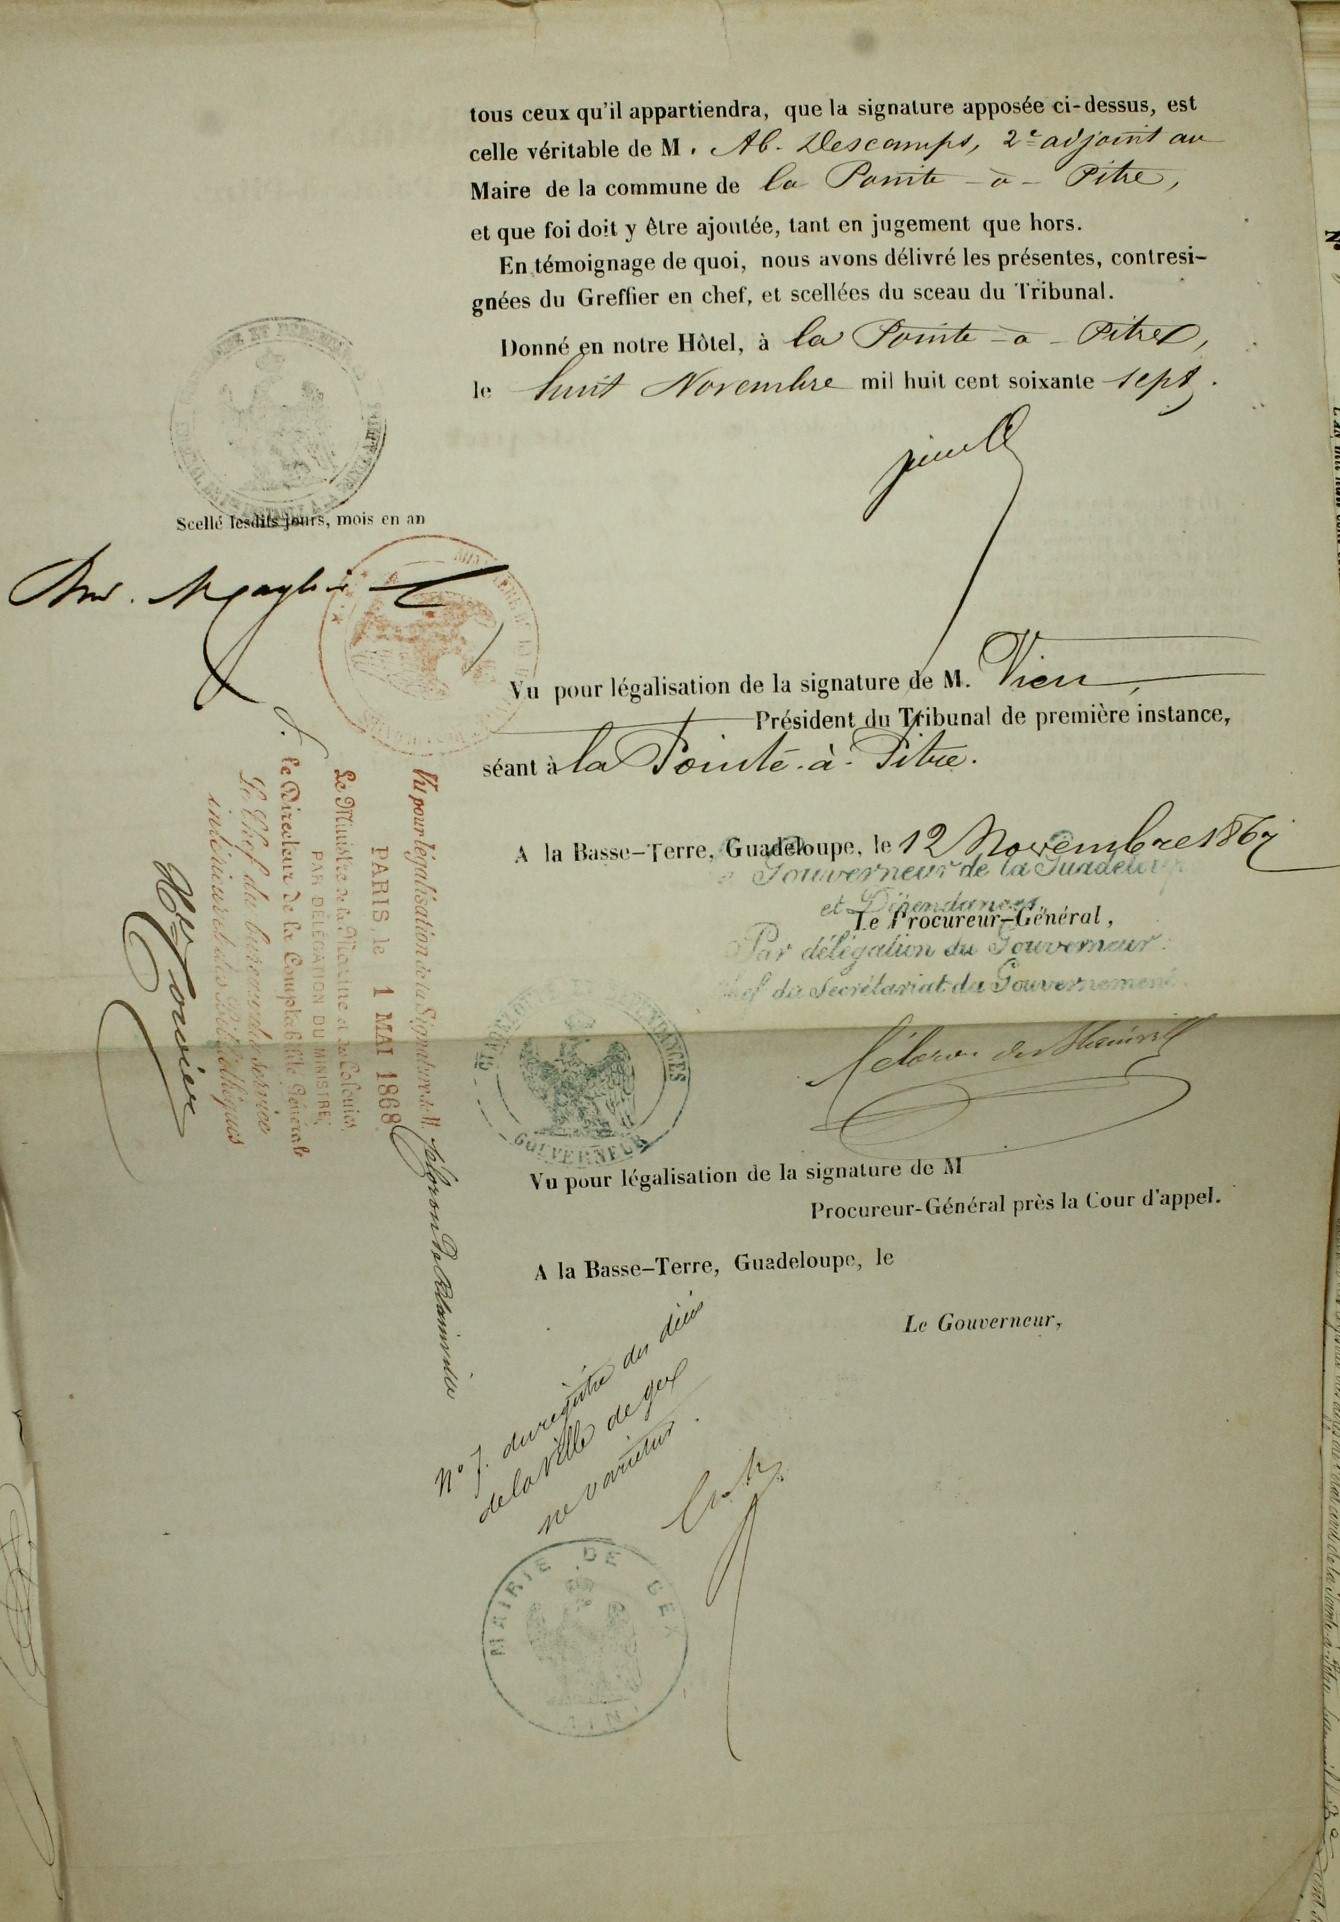 tous ceux qu'il appartiendra, que la signature apposée ci-dessus, est
celle véritable de M. Ab. Descamps, 2e adjoint au
Maire de la commune de la Pointe-à-Pitre,
et que foi doit y être ajoutée, tant en jugement que hors.
En témoignage de quoi, nous avons délivré les présentes, contresi-
gnées du Greffier en chef, et scellées du sceau du Tribunal.
Donné en notre Hôtel, à la Pointe-à-Pitre,
le huit Novembre mil huit cent soixante sept.
Scellé lesdits jours, mois en an
Vu pour légalisation de la signature de M. Vien,
Président du Tribunal de première instance,
séant à la Pointe-à-Pitre.
A la Basse-Terre, Guadeloupe, le 12 Novembre 1867
Gouverneur de la Guadeloupe
et Dépendances
Le Procureur-Général,
Par délégation du Gouverneur:
Chef du Secrétariat du Gouvernement
GUADELOUPE ET DÉPENDANCES
GOUVERNEUR
Vu pour légalisation de la signature de M
Procureur-Général près la Cour d'appel.
A la Basse-Terre, Guadeloupe, le
Le Gouverneur,
Vu pour légalisation de la Signature de M.
PARIS, le 1 MAI 1868
Le Ministre de la Marine et des Colonies
PAR DÉLÉGATION DU MINISTRE;
Le Directeur de la Comptabilité Générale
Le Chef du bureau du service
intérieur et des Bibliothèques
No 7. du registre des décès
de la ville de Gex
ne varietur.
MAIRIE DE GEX
(AIN)